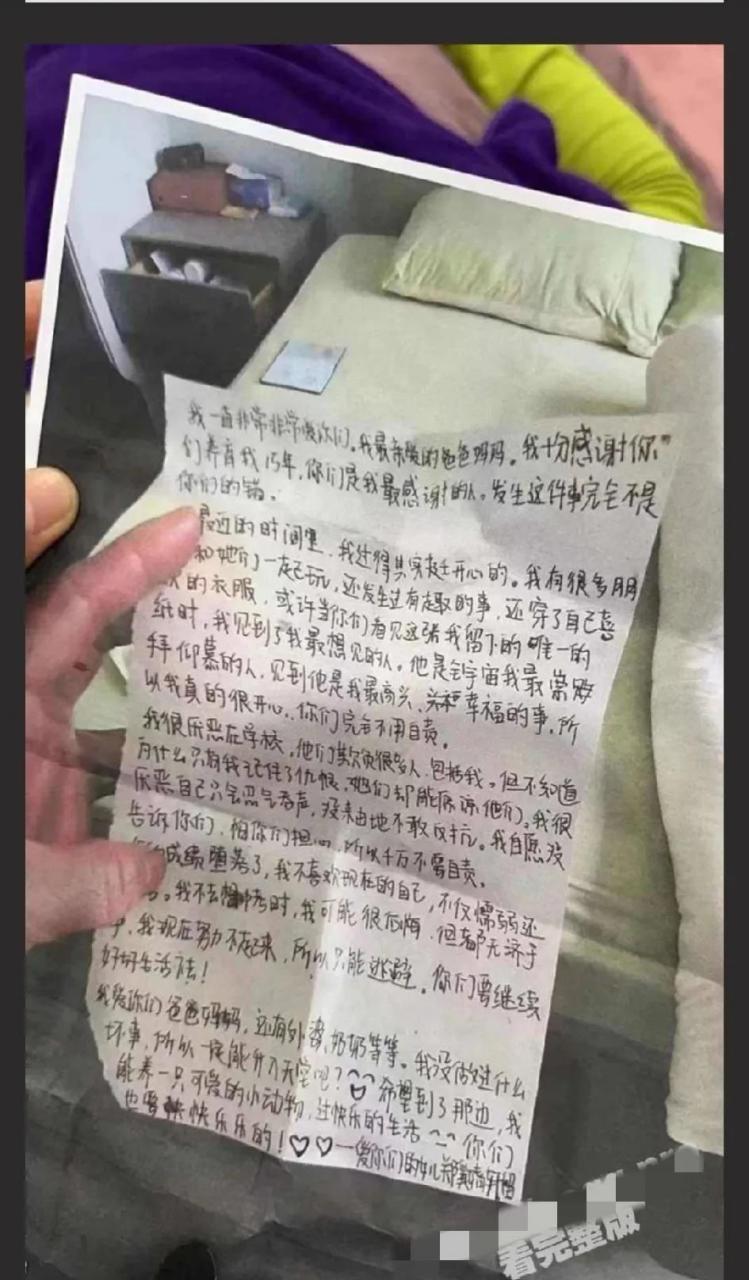 我一直非常非常爱你们。我最亲爱的爸爸妈妈。我十分感谢你
们养育我15年,你们是我最感谢的人。发生这件事完全不是
你们的错。
最近的时间里,我过得其实挺开心的。我有很多朋
和她们一起玩,还发生过有趣的事,还穿了自己喜
欢的衣服,或许当你们看见这张我留下的唯一的
纸时,我见到了我最想见的人。他是全宇宙我最崇
拜仰慕的人,见到他是我最高兴、幸福的事,所
以我真的很开心,你们完全不用自责。
我很厌恶在学校,他们欺负很多人,包括我。但不知道
为什么只有我记住了仇恨,她们却能原谅他们。我很
厌恶自己只会忍气吞声,没来由地不敢反抗。我自愿没
告诉你们,怕你们担心,所以千万不要自责。
成绩堕落了,我不喜欢现在的自己,不仅懦弱还
。我不去考时,我可能很后悔,但都无济于
事,我现在努力不起来,所以只能逃避。你们要继续
好好生活下去!
我爱你们爸爸妈妈,还有外婆、奶奶等等。我没做过什么
坏事,所以一定能升入天堂吧?^^希望到了那边,我
能养一只可爱的小动物,过快乐的生活^_^你们
也要快快乐乐的!♡♡—爱你们的女儿
看完整版